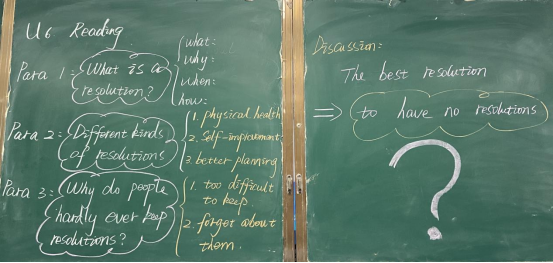 U6 Reading
Para 1:
What is a
resolution?
what:
why:
when:
how:
Para 2:
Different kinds
of resolutions
1. physical health
2. Self-improvement
3. better planning
Para 3:
Why do people
hardly ever keep
resolutions?
1. too difficult
to keep.
2. forget about
them.
Discussion:
The best resolution
⇒ to have no resolutions
?